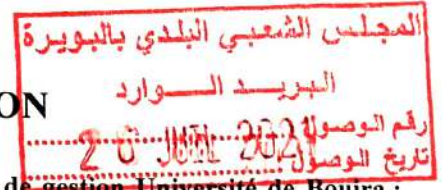 المجلس الشعبي البلدي بالبويرة
البريــد الـــوارد
ON
رقم الوصول
تاريخ الوصول
JUIL 2021
de gestion Université de Bouira